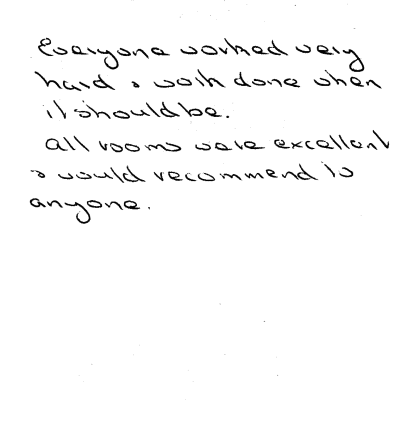 Everyone worked very
hard & work done when
it should be.
All rooms were excellent
& would recommend to
anyone.